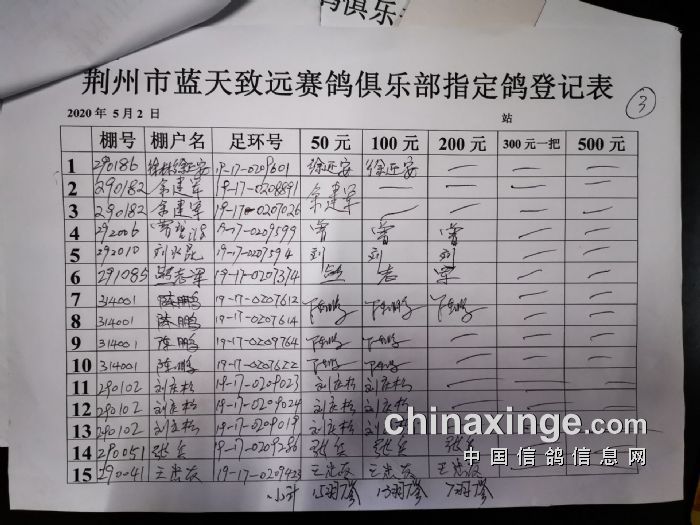 鸽俱乐
荆州市蓝天致远赛鸽俱乐部指定鸽登记表
③
2020 年 5 月 2 日 站
棚号 棚户名 足环号 50 元 100 元 200 元 300元一把 500 元
1 290186 19-17-0209601 徐近安 徐近安 — — —
2 290182 余建军 19-17-0208891 余建军 — — — —
3 290182 余建军 19-17-0207026 — — — —
4 292006 19-17-0209599 曾 曾 曾 — —
5 292010 19-17-0207594 刘 刘 刘 — —
6 291085 19-17-0207374 熊 志 军 — —
7 314001 陈鹏 19-17-0207612 — —
8 314001 陈鹏 19-17-0207614 — —
9 314001 陈鹏 19-17-0209764 — — —
10 314001 陈鹏 19-17-0207622 — — —
11 290102 刘庆松 19-17-0209023 刘庆松 刘庆松 — — —
12 290102 刘庆松 19-17-0209024 刘庆松 刘庆松
13 290102 刘庆松 19-17-0209019 刘庆松 刘庆松
14 290051 张兵 19-17-0209286 张兵 张兵 张兵
15 290041 19-17-0209423
小计 15羽 13羽 7羽
chinaxinge.com
中国信鸽信息网